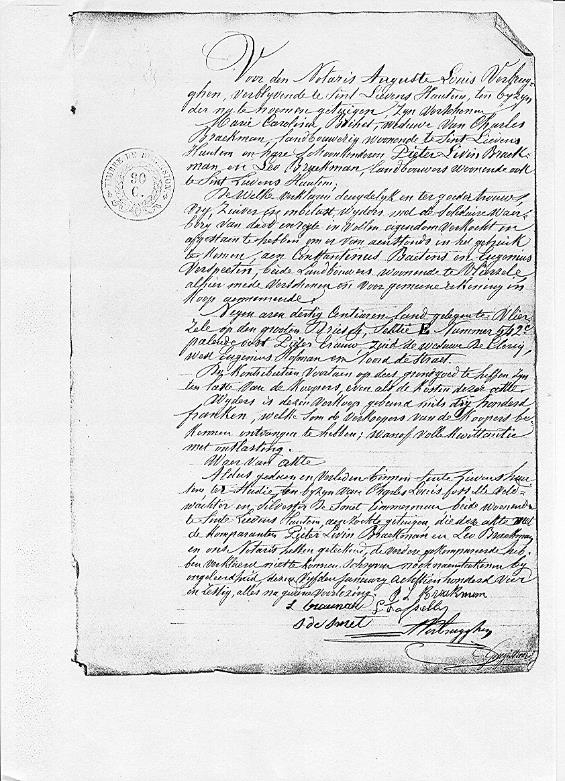 Voor den Notaris Auguste Louis Verbrug-
ghen, verblyvende te Sint Lievens Hautem, ten byzyn
der na te noemene getuigen, Zyn Verschenen
Marie Carolina, weduwe van Charles
Braekman, landbouwerig woonende te Sint Lievens
Hautem en hare schoonkinderen Pieter Livin Braek-
man en Leo Braekman landbouwers woonende ook
te Sint Lievens Hautem;
De Welke verklaren deugdelyk en ter goeder trouw,
vry, Zuiver en onbelast, wyders met de Solidaire waer-
borg van daed en regte in Vollen eigendom verkocht en
afgestaen te hebben om er van aenstonds in het gebruik
te komen, aen Constantinus Baetens en Eugenius
Verspeeten, beide Landbouwers woonende te Vlierzele
alhier mede Verschenen en voor gemeene rekening in
Koop aennemende:
Negen aren dertig Centiaren land gelegen te Vlier-
zele op den grooten Driesch, Sektie E Nummer 542c
palende oost Pieter, Zuid de weduwe De Clercq,
West Eugenius Hofman en Noord de straet.
De Kontributien Voortaen op deze grondgoed te heffen Zyn
ten laste van de Koopers, even als de kosten dezer akte
Wyders is dezen Verkoop gebeurd mits dry honderd
franken, welke som de Verkoopers van de Koopers be-
kennen ontvangen te hebben; waerof volle Kwittantie
met ontlasting.
Waer van akte
Aldus gedaen en Verleden binnen Sente Lievens Hau-
tem, ter Studie, ten byzyn van Charles Louis veld-
wachter en Silvester De Smet Timmerman beide woonende
te Sente Lievens Hautem, aenzochte getuigen, die deze akte met
de Komparanten Pieter Livin Braekman en Leo Braekman
en ons Notaris hebben geteekend, de verdere gekompareerde heb-
ben verklaerd niet te konnen Schryven noch naemteekenen by
ongeleerdheid, dezen Vyfden January achttien honderd Vier
en Zestig, alles na gedane Voorlezing. P L Braekman
L Braekman
S de Smet
Verbrugghen